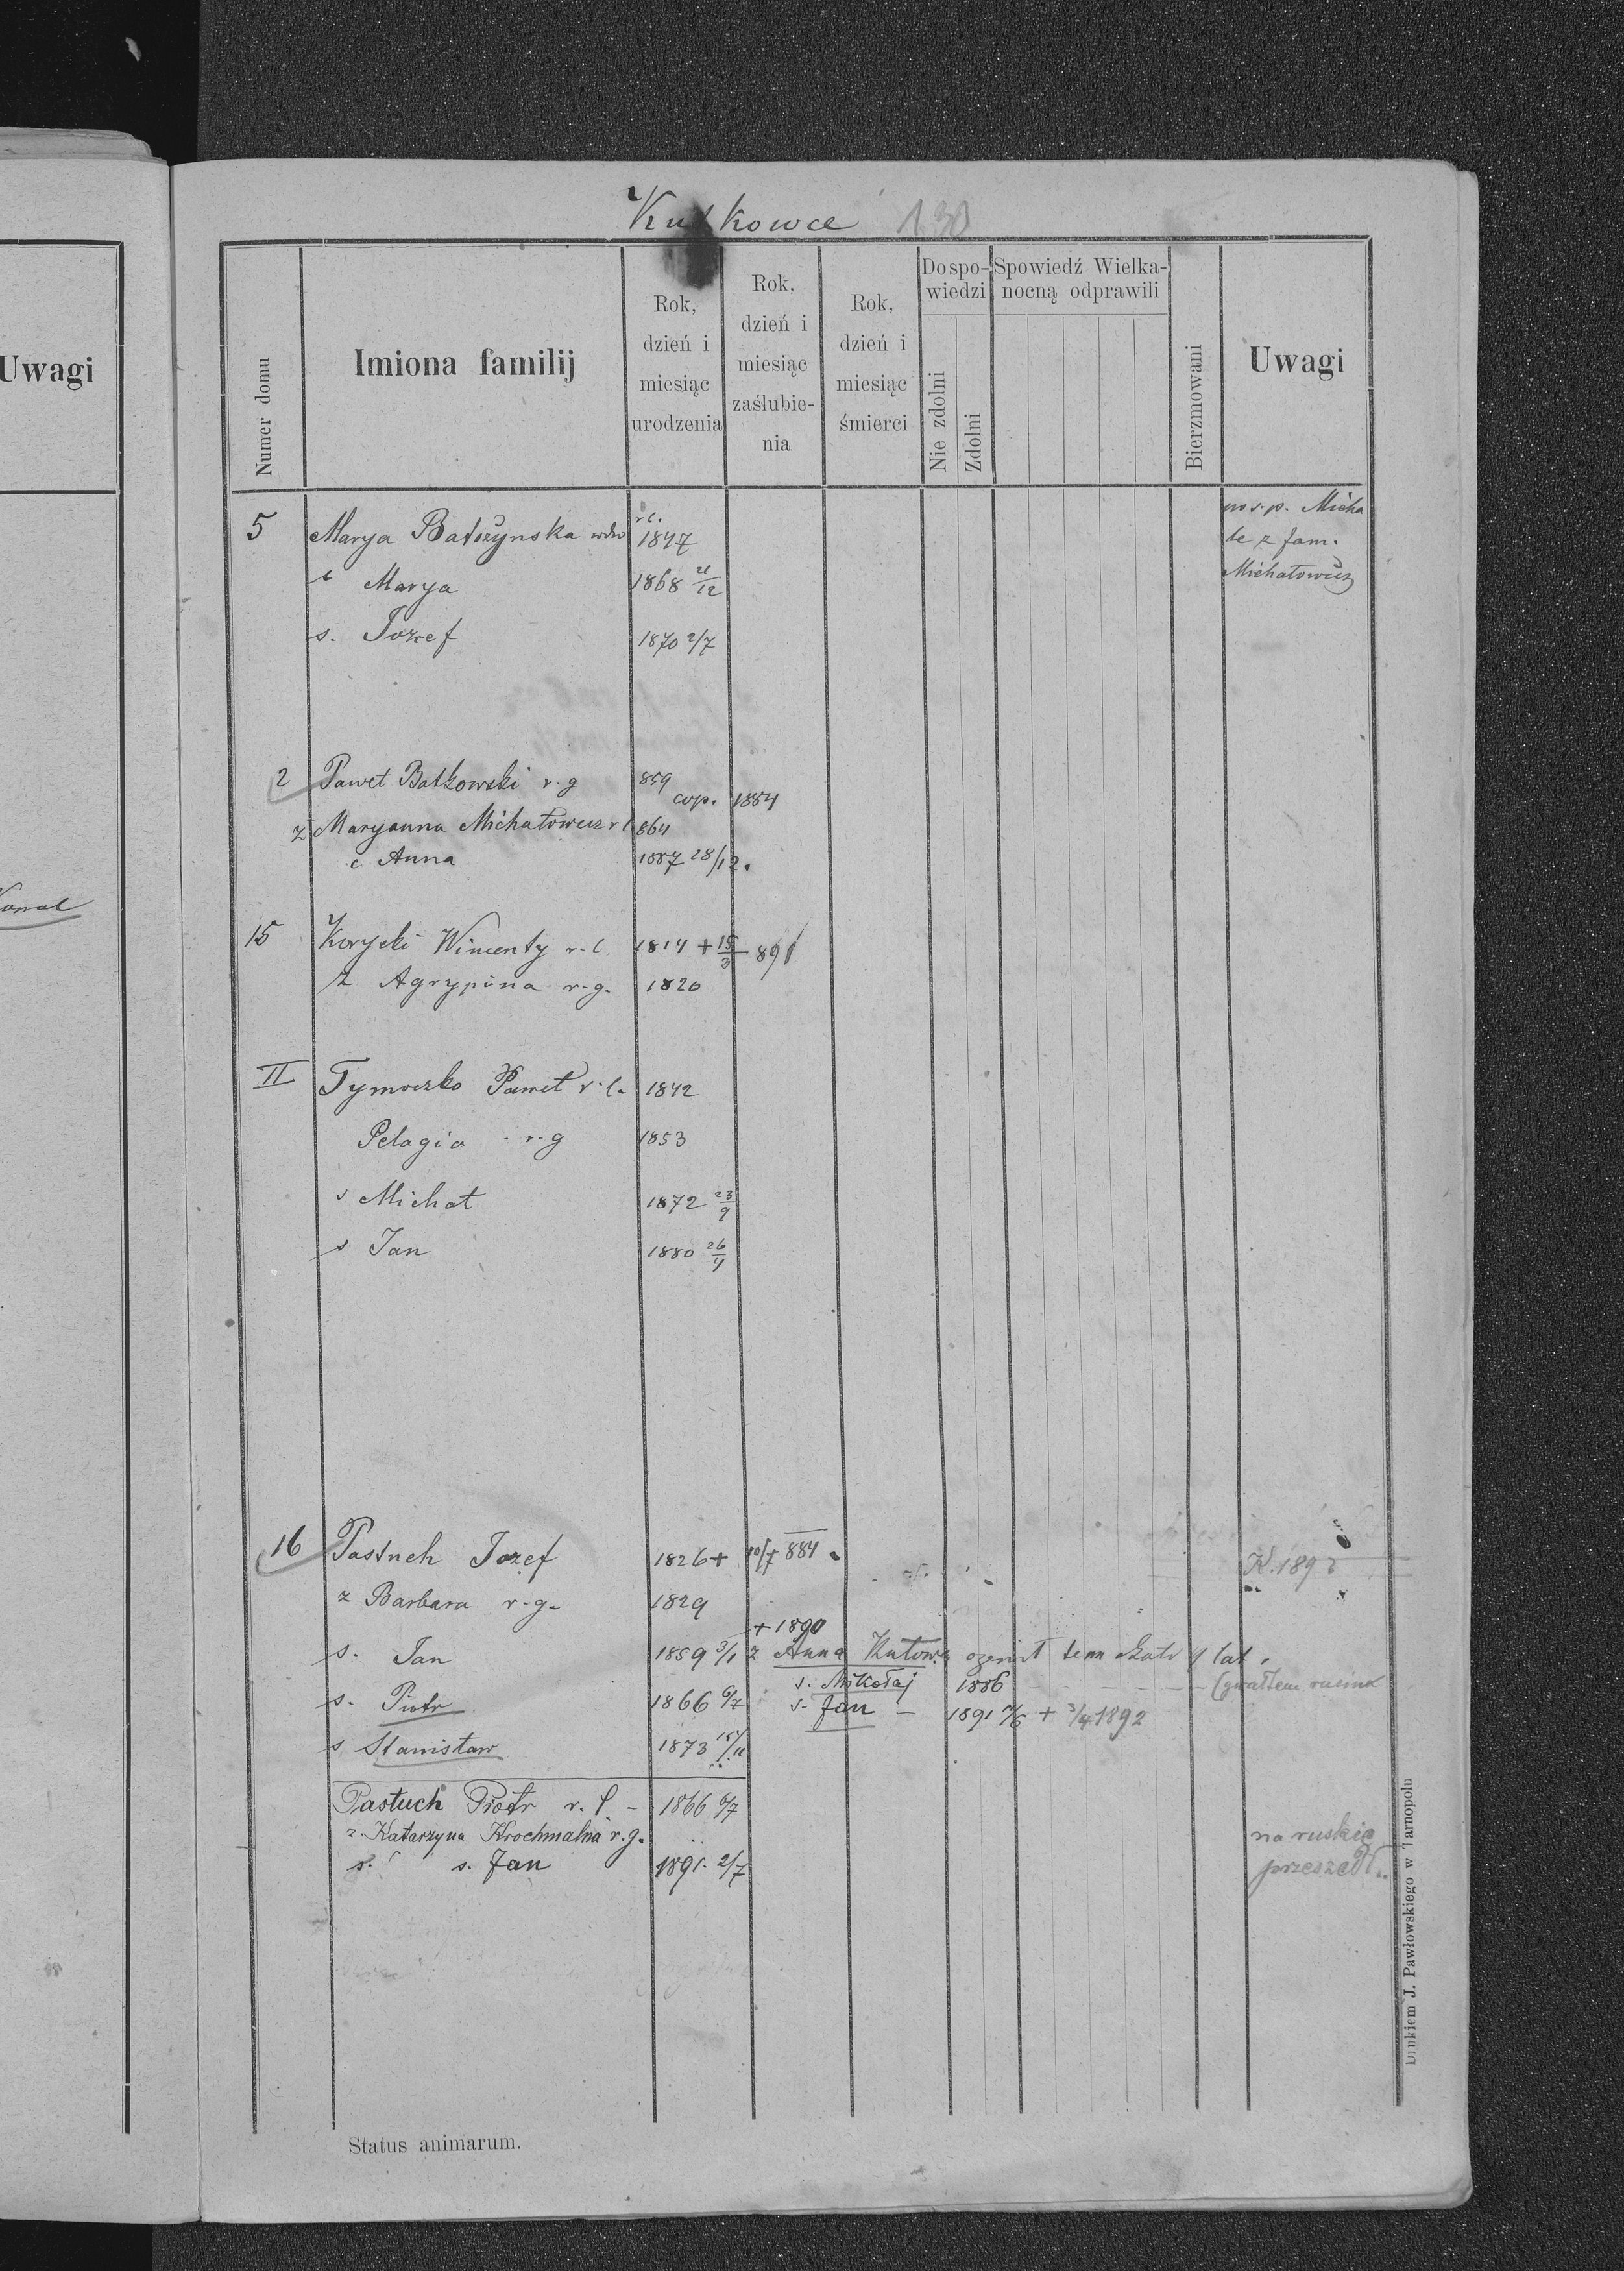 Kutkowce 130
Uwagi
Numer domu
Imiona familij
Rok, dzień i miesiąc urodzenia
Rok, dzień i miesiąc zaślubienia
Rok, dzień i miesiąc śmierci
Do spowiedzi
Nie zdolni
Zdolni
Spowiedź Wielkanocną odprawili
Bierzmowani
Uwagi
5 Marya wdw r l. 1847 po s. p. Micha
c Marya 1868 21/12 le z fam.
s. Jozef 1870 2/7 Michałowicz
2 Paweł Batkowski r. g 859
cop. 1884
z Maryanna Michałowicz r l 864
c Anna 1887 28/12.
15 Korycki Wincenty r. l. 1814 + 15/3 891
Z Agrypina r. g. 1820
II Tymoczko Paweł r. l. 1842
Pelagia - r. g 1853
s Michał 1872 23/9
s Jan 1880 26/4
16 Pastuch Jozef 1826 + 10/7 884 K. 189
z Barbara r. g. 1829
+ 1890
s. Jan 1859 3/1 z Anna ożenił temu 4 lat.
s. Mikołaj 1886 (gwałtem
s. Piotr 1866 6/7 s. Jan - 1891 + 3/4 1892
s Stanisław 1873
Pastuch Piotr r. l. - 1866 6/7
z. Katarzyna Krochmalna r. g. na ruskie
s. Jan 1891. 2/7 przeszedł..
Status animarum.
Drukiem J. Pawłowskiego w Tarnopolu